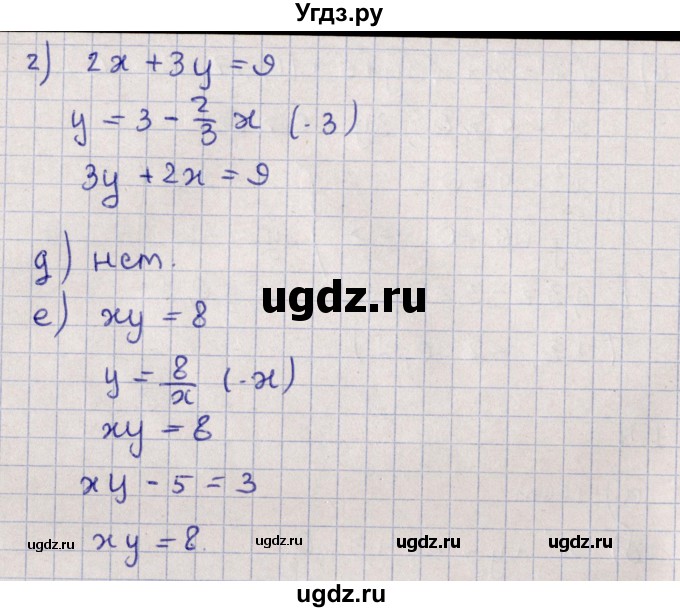 Угдз.ру
г) 2x + 3y = 9
y = 3 - 2/3 x (·3)
3y + 2x = 9
д) нет.
ugdz.ru
е) xy = 8
y = 8/x (·x)
xy = 8
xy - 5 = 3
xy = 8.
ugdz.ru ugdz.ru ugdz.ru ugdz.ru
ugdz.ru